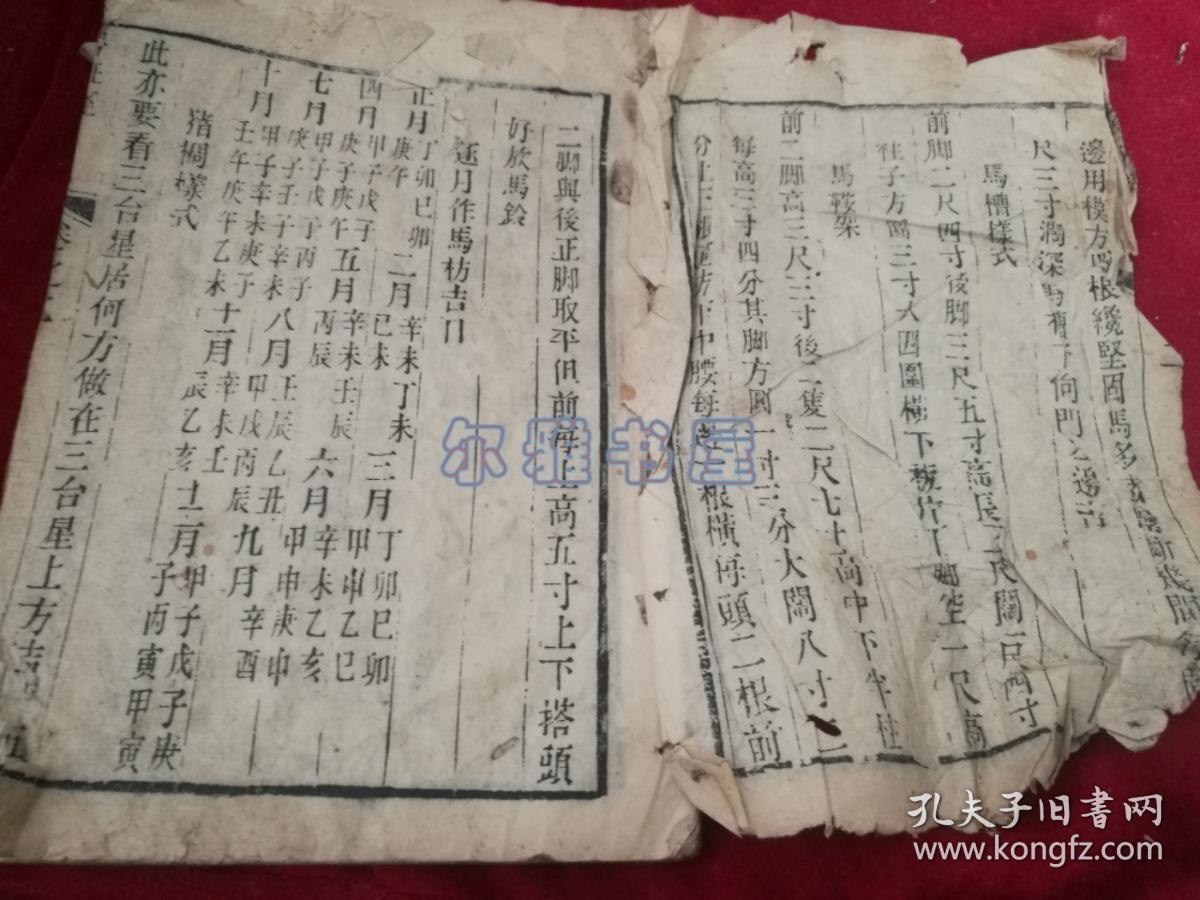 邊用模方四根纔堅固馬多
斷幾間
尺三寸濶深馬
向門之邊
馬槽樣式
前脚二尺四寸後脚三尺五寸高長三尺闊一尺四寸
柱子方圓三寸大四圍橫下板片下脚空一尺高
馬鞍架
前二脚高三尺三寸後二隻二尺七寸高中下半柱
每高三寸四分其脚方圓一寸三分大闊八寸二
分上三根
中腰每
根橫每頭二根前
二脚與後正脚取平但前每上高五寸上下搭頭
好放馬鈴
逐月作馬枋吉日
正月丁卯巳卯庚午 二月辛未丁未巳未 三月丁卯巳卯甲申乙巳
四月甲子戊子庚子庚午 五月辛未壬辰丙辰 六月辛未乙亥甲申庚申
七月甲子戊子丙子庚子壬子辛未 八月壬辰乙丑甲戌丙辰 九月辛酉
十月甲子辛未庚子壬午庚午乙未 十一月辛未壬辰乙亥 十二月甲子戊子庚子丙寅甲寅
猪欄樣式
此亦要看三台星居何方做在三台星上方吉
五
尔雅书屋
孔夫子旧书网
www.kongfz.com